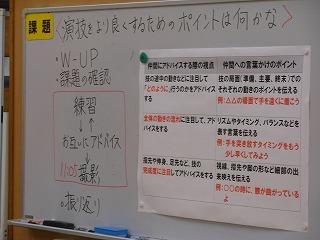 課題
〈演技をより良くするためのポイントは何かな〉
・W-UP
・課題の確認
練習
お互いにアドバイス
11:05 撮影
・振り返り
仲間にアドバイスする際の視点
仲間への言葉かけのポイント
技の途中の動きなどに注目して
「どのように」行うのかをアドバイス
する
技の局面(準備、主要、終末)での
それぞれの動きのポイントを伝える
例:△△の場面で手を遠くに着こう
全体の動きの流れに注目して、アド
バイスをする
リズムやタイミング、バランスなどを
表す言葉を伝える
例:手を突き放すタイミングをもう
少し早くしてみよう
指先や伸身、足先など、技の
完成度に注目してアドバイスをする
視線、指先や脚の形など細部の出
来映えを伝える
例:○○の時に、膝が曲がっている
よ